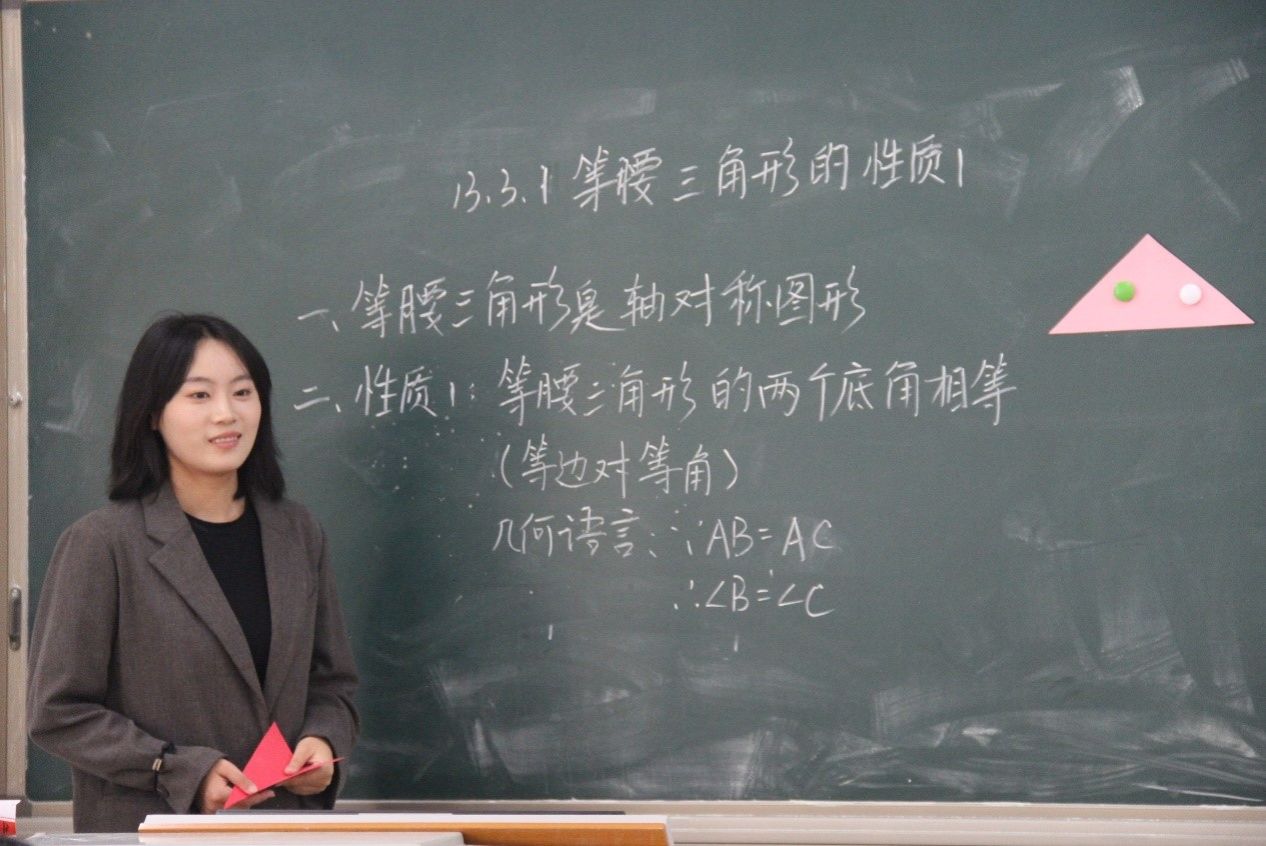 13.3.1 等腰三角形的性质1
一、等腰三角形是轴对称图形
二、性质1：等腰三角形的两个底角相等
（等边对等角）
几何语言：∵AB=AC
∴∠B=∠C